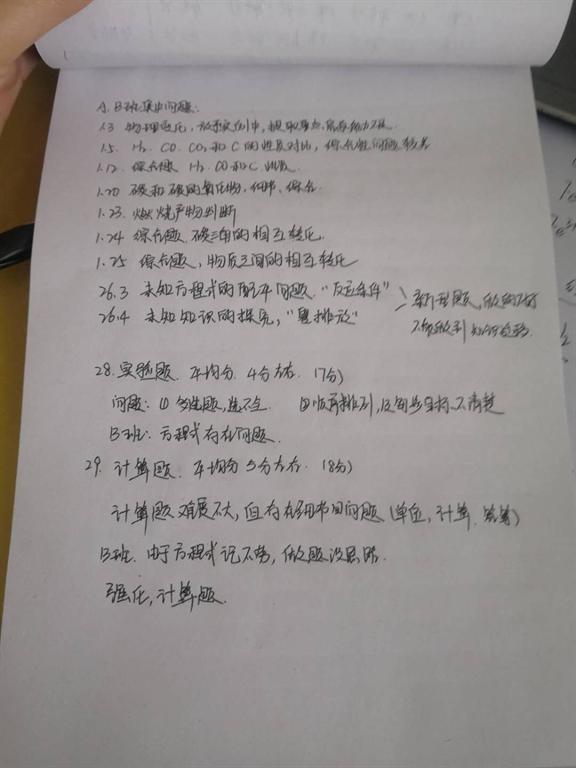 A、B班集中问题:
1.3 物理变化,
1.5. H₂、CO、CO₂和C的性质对比,综合性问题较差
1.12. 综合题 H₂、CO和C
1.20 碳和碳的氧化物,细节、综合
1.23. 燃烧产物判断
1.24 综合题、碳三角的相互转化.
1.25 综合题,物质之间的相互转化
26.3 未知方程式的配平问题."反应条件"
26.4 未知知识的探究,"零排放"
新型题、做的不好
不能做到知识迁移
28.实验题. 平均分. 4分左右. (7分)
问题:① 多选题,选不全. ②顺序排列,
B班:方程式存在问题.
29. 计算题. 平均分 5分左右. (8分)
计算题难度不大,但存在细节问题(单位,计算、答等)
B班. 由于方程式记不劳,做题没思路.
强化,计算题.